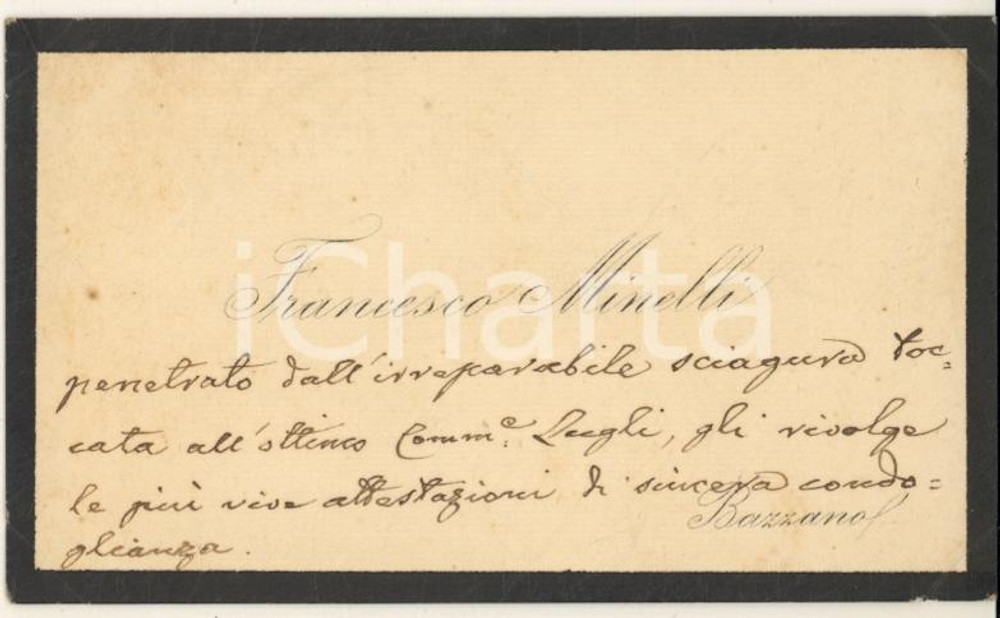 Francesco Minelli
penetrato dall'irreparabile sciagura toc=
cata all'ottimo Comm.e Lugli, gli rivolge
le più vive attestazioni di sincera condo=
glianza.
Bazzano
iCharta